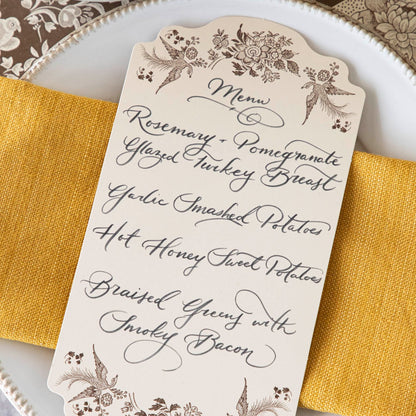 Menu
Rosemary + Pomegranate
Glazed Turkey Breast
Garlic Smashed Potatoes
Hot Honey Sweet Potatoes
Braised Greens with
Smoky Bacon